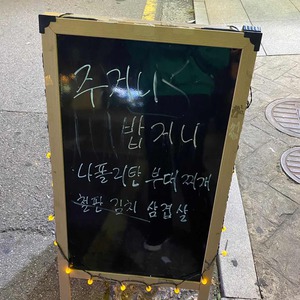 주거니
밥거니
나폴리탄 부대찌개
철판 김치 삼겹살